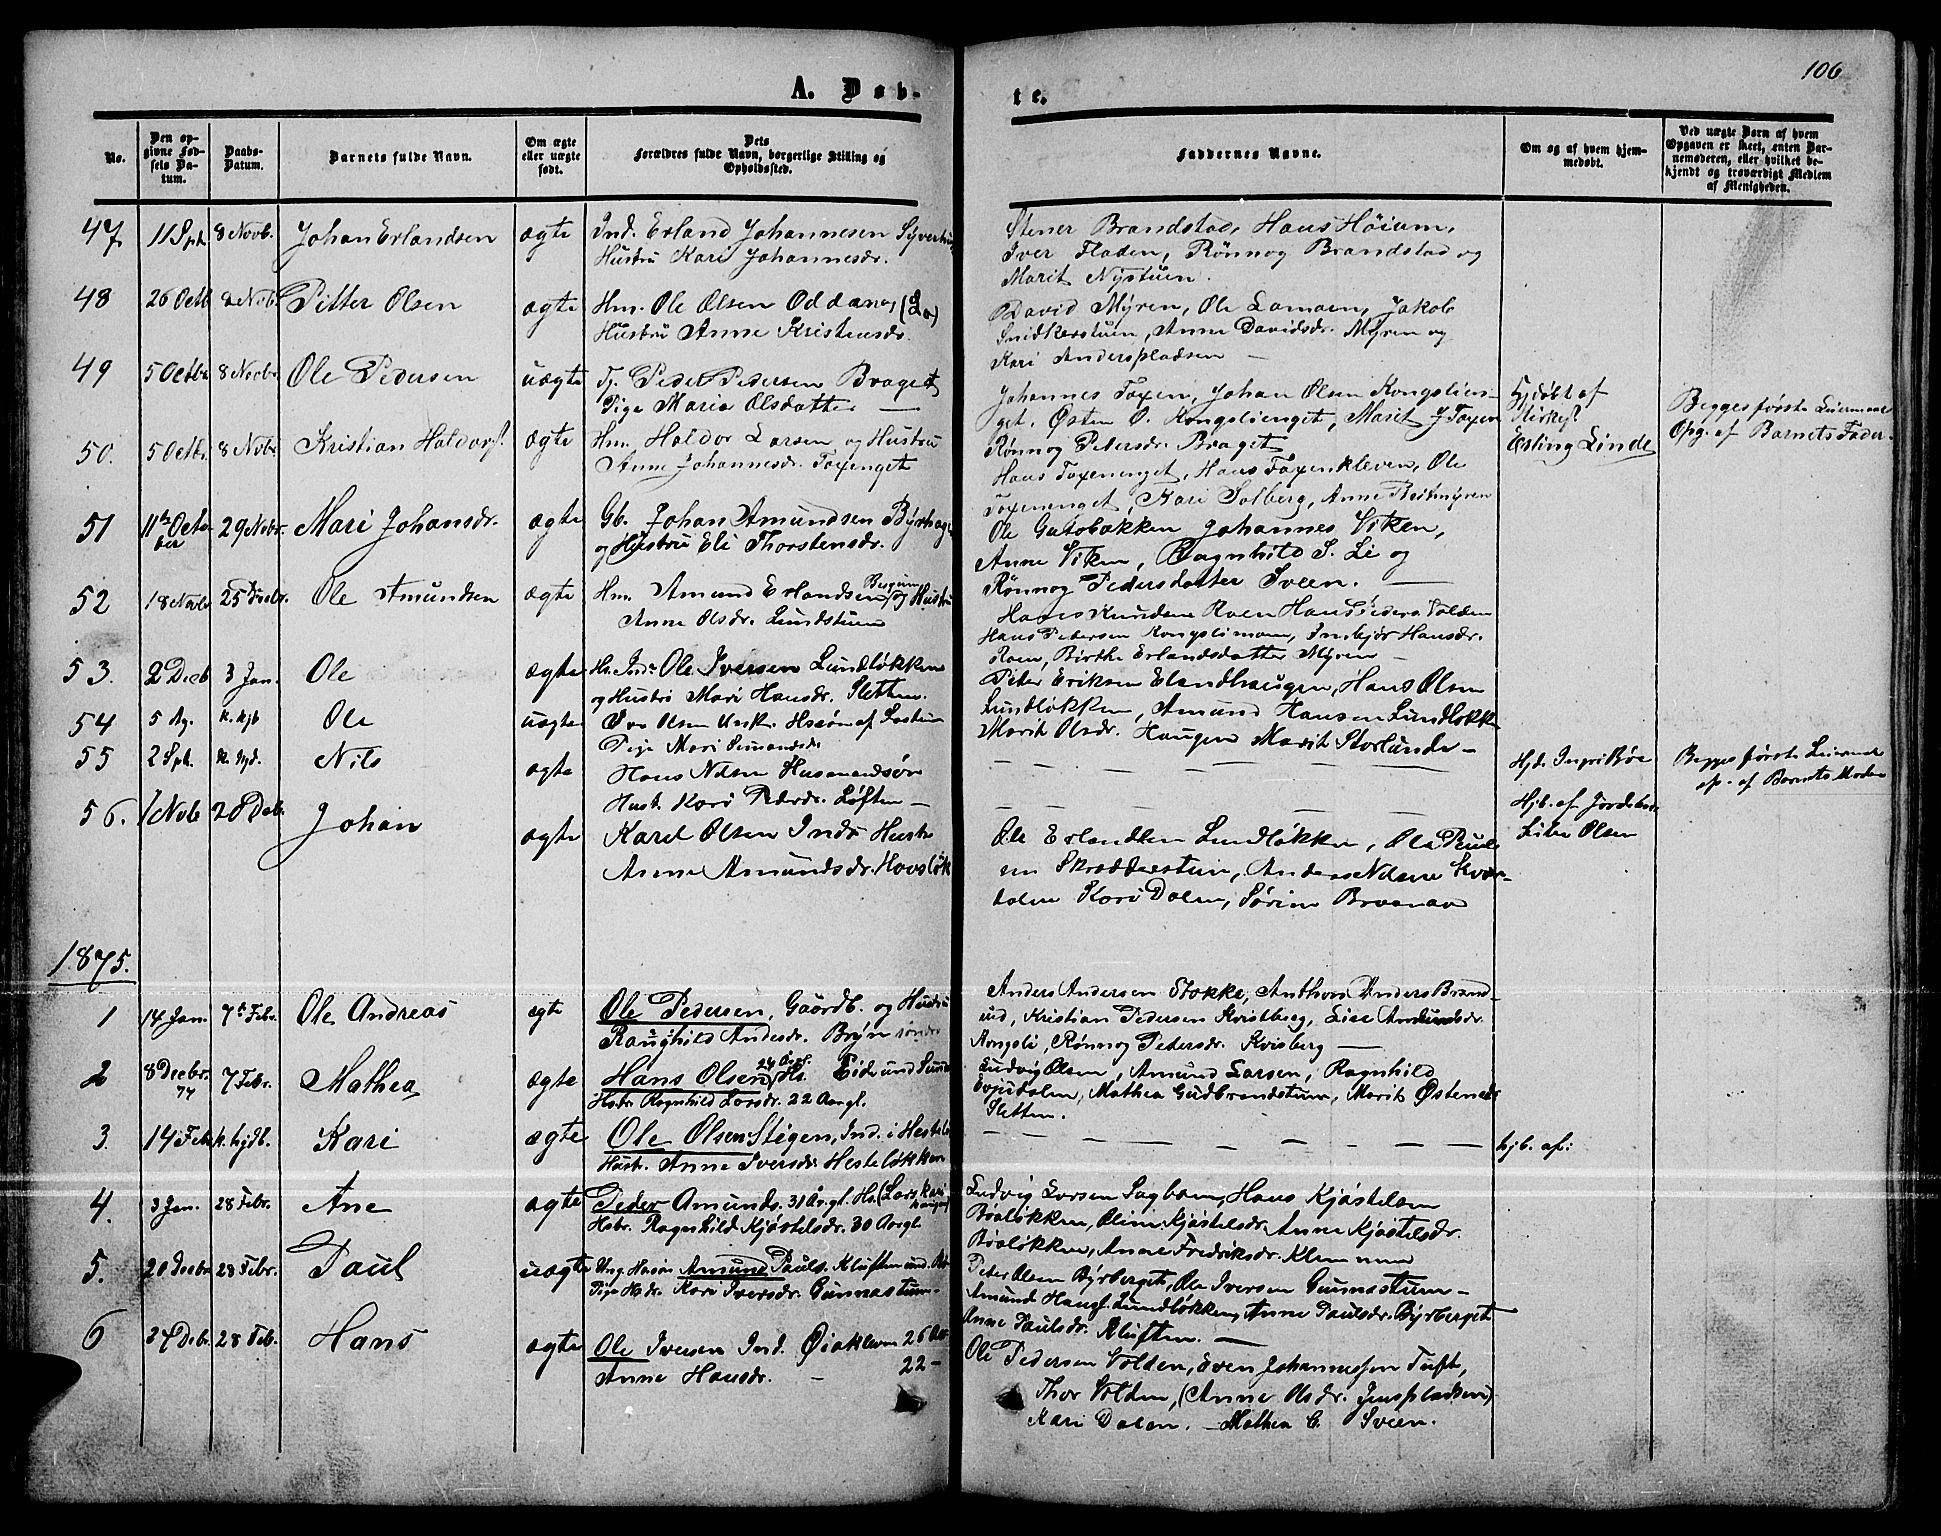 106
A. Døb-
te.
No.
Den opgivne Fødsels Datum.
Daabs-Datum.
Barnets fulde Navn.
Om ægte eller uægte født.
Dets Forældres fulde Navn, borgerlige Stilling og Opholdssted.
Faddernes Navne.
Om og af hvem hjemmedøbt.
Ved uægte Børn af hvem Opgaven er skeet, enten Barnemoderen, eller hvilket bekjendt og troværdigt Medlem af Menigheden.
47 11 Spt. 8 Novb. Johan Erlandsen ægte Ind. Erland Johannesen
Hustru Kari Johannesdr.
Stener Brandstad, Hans Høium,
Iver Fladen, Rønnog Brandstad og
Marit Nystuen.
48 26 Octb 8 Nob. Pitter Olsen ægte Hm. Ole Olsen Oddanes (Lo)
Hustru Anne Kristensdr.
David Myren, Ole Lomoen, Jakob
Snidkerstuen, Anne Davidsdr. Myren og
Kari Anderspladsen —
49 5 Octbr 8 Novbr Ole Pedersen uægte Tj. Peder Pedersen Braget
Pige Maria Olsdatter —
Johannes Foxen, Johan Olsen Kongslien-
get, Østen O. Kongslienget, Marit J Foxen
Rønnog Petersdr. Braget
Hjdøbt af
Kirkes.
Erling Linde
Begges første Leiermaal
Opg. af Barnets Fader.
50. 5 Octbr. 8 Nobr Kristian Haldors. ægte Hm. Haldor Larsen og Hustru
Anne Johannesdr. Foxenget
Hans Foxenenget, Hans Foxenkleven, Ole
Foxenenget, Kari Solberg, Anne
51 11te October 29 Nobr. Mari Johansdr. ægte Gb. Johan Amundsen Byrhage
og Hustru Eli Thorstensdr.
Ole Gutobakken Johannes Viken,
Anne Viken, Ragnhild S. Li og
Rønnog Pedersdatter Sveen. —
52 18 Nobr 25 Ole Amundsen ægte Hm. Amund Erlandsen og Hustru
Anne Olsdr. Lundstuen
Hans Knudsen Roen Hans Peders Volden
Hans Petersen Kongslimoen, Ingebjør Hansdr.
Roen, Birthe Erlandsdatter Myren —
53. 2 Decb 3 Jan. Ole ægte Hs. Ind. Ole Iversen Lundløkken
og Hustru Mari Hansdr. Sletten.
Peter Eriksen Elandhaugen, Hans Olsen
Lundløkken, Amund Hansen Lundløkk
Marit Olsdr. Haugen Marit Storlunde —
54 5 Ag. k. hjb Ole uægte Ivar Olsen Unk. Hssøn af
Pige Mari Simensdr
— — — — — — — —
Hjd. Ingri Bøe
Begges første Leiermaal
op. af Barnets Moder
55 2 Spt. k. hjd. Nils ægte Hans Nilsen Husmandsøn
Hust. Kari Pedersdr. Løften —
— — — — — — — —
Hjb. af Jordebr.
Lisbe Olsen
56. 1 Nob 28 Deb. Johan ægte Karel Olsen Inds Hustr
Anne Amundsdr. Hovsløk
Ole Erlandsen Lundløkken, Ole Paul-
sen Skrædderstuen, Anders Nilsen Kvær-
dalen Kari Dalen, Sørine
1875.
1 14 Jan. 7de Febr. Ole Andreas ægte Ole Pedersen, Gaardb. og Hustru
Raughild Andesdr. Bryn søndre
Anders Andersen Stokke, Anthon Anders Brand-
ud, Kristian Pedersen Kvistberg, Lise Amundsdr.
Kongsli, Rønnog Petersdr. Kvisberg —
2 8 Decbr. 74 7 Febr. Mathea ægte Hans Olsen, 24 Aargl. Hs. Eide und Sunde
Hstr. Ragnhild Larsdr. 22 Aargl.
Ludvig Olsen, Amund Larsen, Ragnhild
Evjudalen, Mathea Gudbrandstuen, Marit Østensdr
Sletten.
3. 14 Feb k. hjdb. Kari ægte Ole Olsen Stigen, Ind. i Hestel
Hustr. Anne Iversdr Hesteløkken
— — — — — — — —
hjb. af:
4. 3 Jan. 28 Febr. Ane ægte Peder Amunds. 31 Aargl. Hs. (Lars Karihaugen)
Hstr. Ragnhild Kjøstelsdr. 30 Aargl
Ludvig Larsen Sagbøen, Hans Kjøstelsen
Bøaløkken, Oline Kjøstelsdr. Anne Kjøstelsdr.
Bøaløkken, Anne Fredriksdr. Klemmen
5. 20 Decbr 28 Febr. Paul uægte Ung. Hssøn Amund Pauls. Kluften und.
Pige Hsdr. Kari Iversdr. Gunnastuen.
Peter Olsen Byrberget, Ole Iversen Gunnastuen —
Amund Haugl. Lundløkken, Anne Paulsdr. Byrberget
Anne Paulsdr. Kluften. —
6 24 Debr. 28 Feb. Hans ægte Ole Iversen Ind. Øiakleven 26 Aar
Anne Hansdr. — 22 —
Ole Pedersen Volden, Even Johannessen Tuft,
Thor Volden, (Anne Olsdr. Jenspladsen)
Kari Dalen. — Mathea C. Sveen.